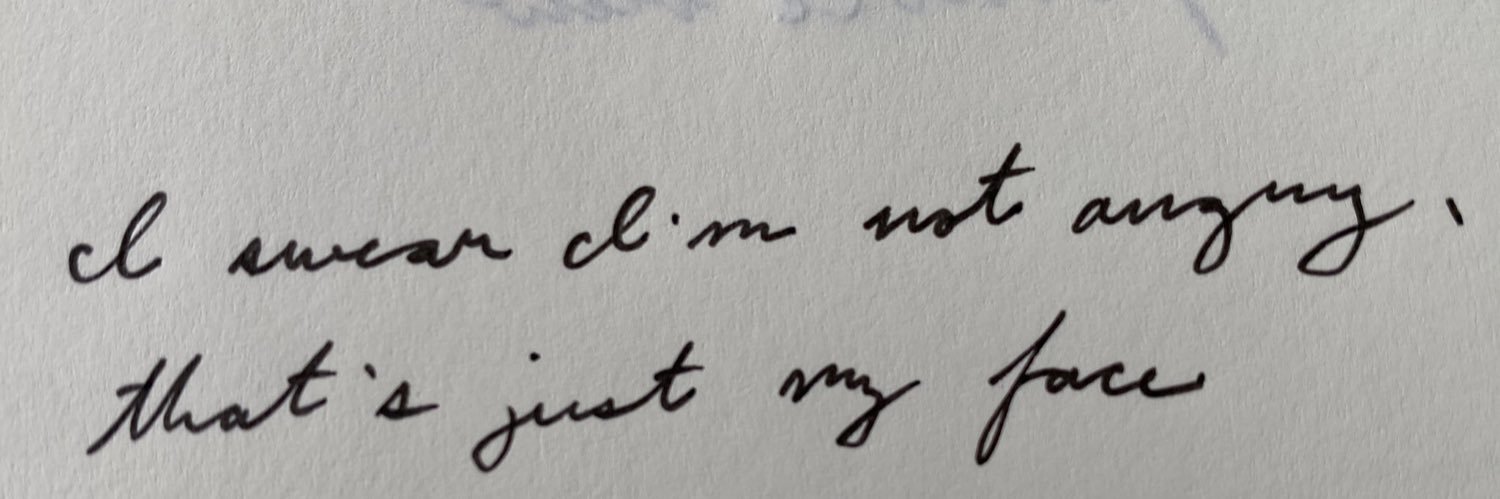 I swear I'm not angry,
that's just my face